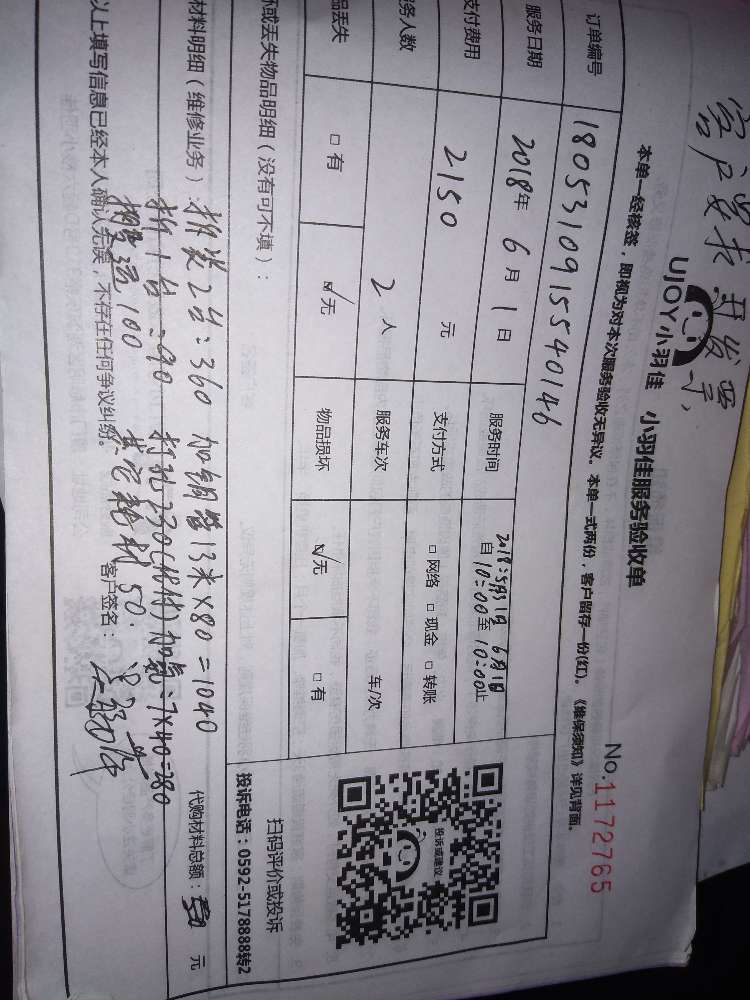 客户要求开发票,
UJOY小羽佳 小羽佳服务验收单
No.1172765
本单一经核签，即视为对本次服务验收无异议。本单一式两份，客户留存一份(红)。《维保须知》详见背面。
订单编号 1805310915540146
服务日期 2018年6月1日 服务时间 2018:5月31日 6月1日 自10:00至10:00止
支付费用 2150元 支付方式 □网络 □现金 □转账
务人数 2人 服务车次 车/次
品丢失 □有 ☑无 物品损坏 ☑无 □有
坏或丢失物品明细（没有可不填）：
投诉或建议
扫码评价或投诉
投诉电话：0592-5178888转2
材料明细（维修业务） 拆装2台:360 加铜管13米×80=1040 代购材料总额： 元
拆1台:90 打孔230 加氟:7×40=280
100 其它耗材50.
以上填写信息已经本人确认无误，不存在任何争议纠纷。 客户签名：